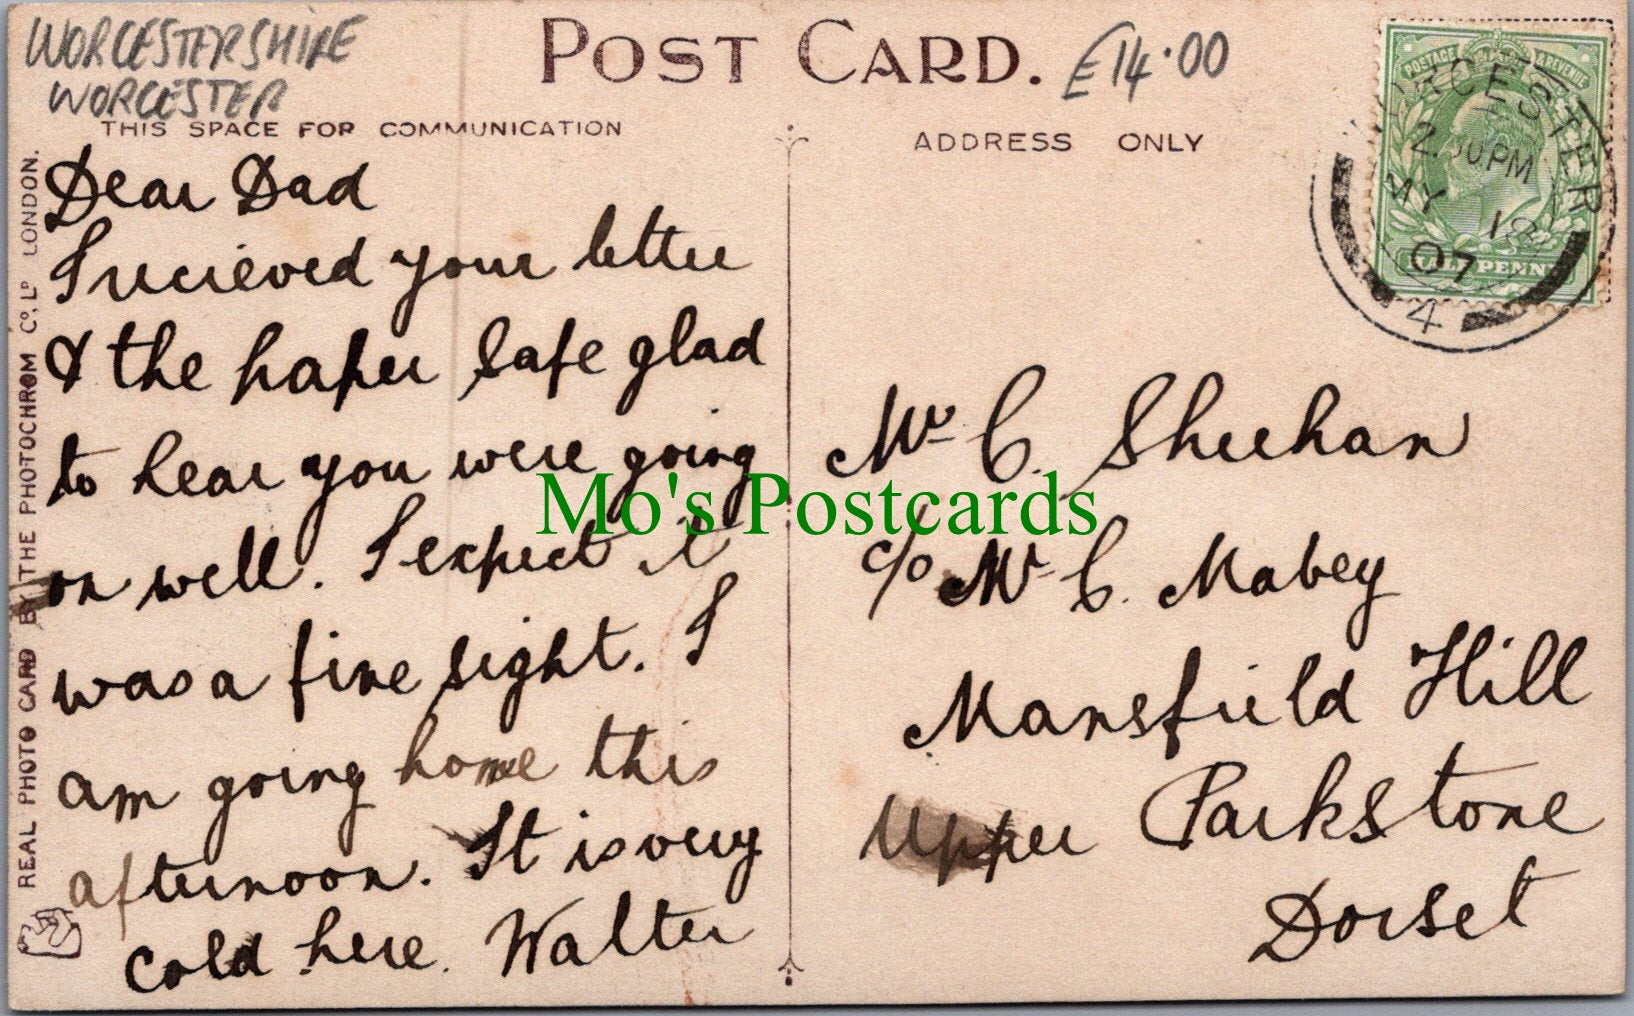 WORCESTERSHIRE
WORCESTER
POST CARD.
£14.00
THIS SPACE FOR COMMUNICATION
ADDRESS ONLY
Dear Dad
I recieved your letter
& the paper safe glad
to hear you were going
on well. I expect it
was a fine sight. I
am going home this
afternoon. It is very
cold here. Walter
Mr C. Sheehan
c/o Mr C. Mabey
Mansfield Hill
Upper Parkstone
Dorset
POSTAGE & REVENUE
HALF PENNY
WORCESTER
2.30PM
MY 18
07
4
REAL PHOTO CARD BY THE PHOTOCHROM Co, Ld LONDON.
Mo's Postcards